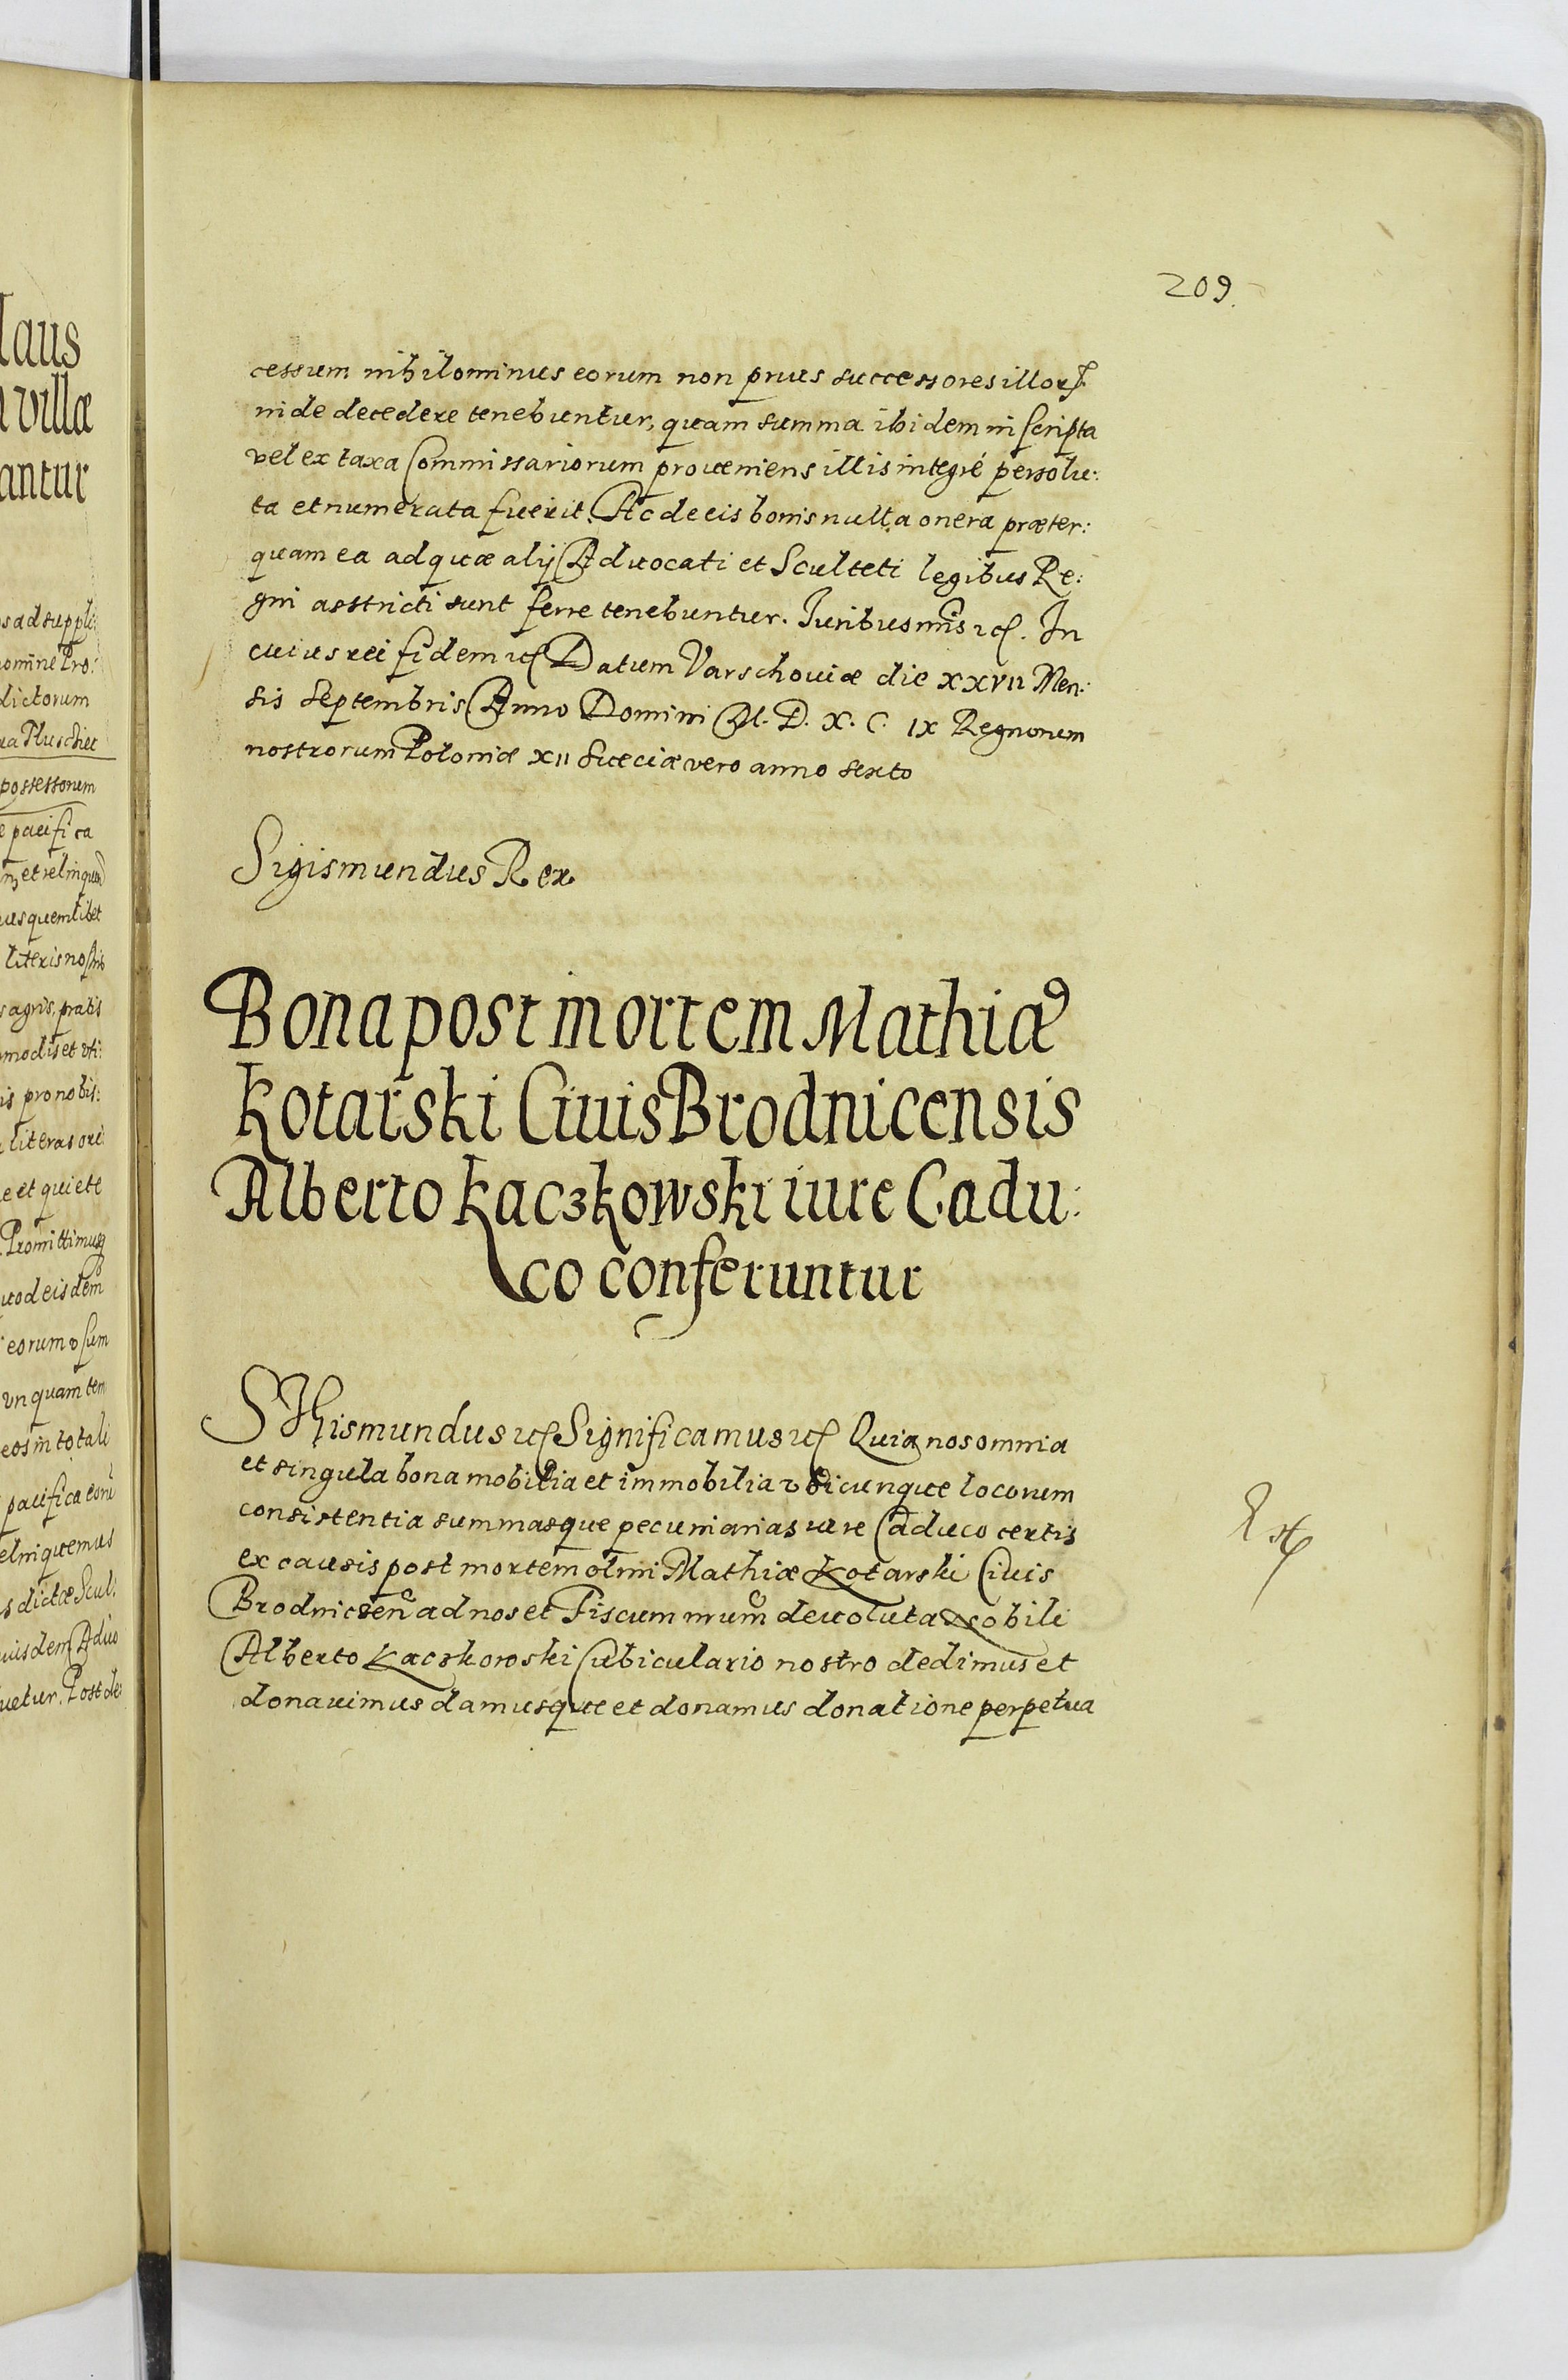 laus
villæ
antur
s ad suppli:
nomine Pro:
dictorum
possessorum
pacifica
et relinque
usquemlibet
literis nostris
agris, pratis
modis et vti:
is pro nobis:
literas
e et quiete
Promittimusq
uod eisdem
eorum vsum
vnquam tem
eos in totali
pacifica eorū
elinquemus
s dictæ Scul:
uisdem Aduo
uetur. Post de
209.
cessum nihilominus eorum non prius successores illorꝝ
inde decedere tenebuntur, quam summa ibidem inscripta
vel ex taxa Commissariorum proueniens illis integré persolu:
ta et numerata fuerit. Ac de eis bonis nulla onera præter:
quam ea ad quæ alij Aduocati et Sculteti legibus Re:
gni asstricti sunt ferre tenebuntur. Iuribus nr̃is etc. In
cuius rei fidem etc Datum Varschouiæ die XXVII Men:
sis Septembris Anno Domini M. D. X. C. IX Regnorum
nostrorum Poloniæ XII Sueciæ vero anno sexto
Sigismundus Rex
Bona post mortem Mathiæ
Kotarski Ciuis Brodnicensis
Alberto Kaczkowski iure Cadu:
co conferuntur
SIgismundus etc Significamus etc Quia nos omnia
et singula bona mobilia et immobilia vbicunque locorum
consistentia summasque pecuniarias iure Caduco certis
ex causis post mortem olim Mathiæ Kotarski Ciuis
Brodnicen̄ ad nos et Fiscum nrūm deuoluta Nobili
Alberto Kaczkowski Cubiculario nostro dedimus et
donauimus damusque et donamus donatione perpetua